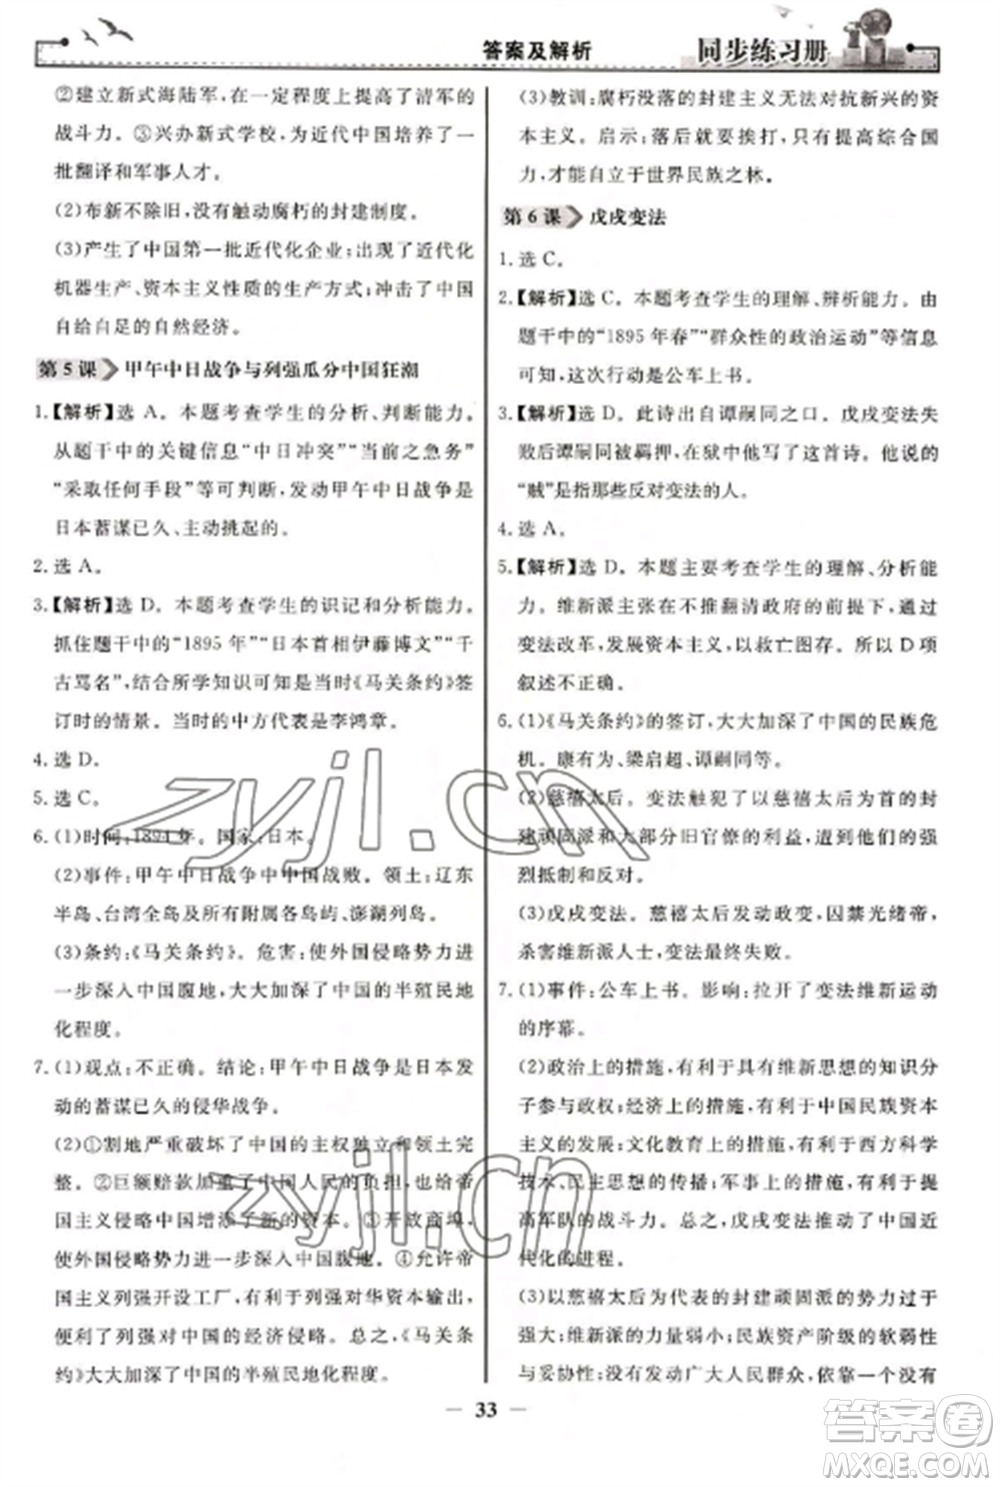 答案及解析
同步练习册
②建立新式海陆军,在一定程度上提高了清军的
战斗力。③兴办新式学校,为近代中国培养了一
批翻译和军事人才。
(2)布新不除旧,没有触动腐朽的封建制度。
(3)产生了中国第一批近代化企业;出现了近代化
机器生产、资本主义性质的生产方式;冲击了中国
自给自足的自然经济。
第 5 课 甲午中日战争与列强瓜分中国狂潮
1.【解析】选 A。本题考查学生的分析、判断能力。
从题干中的关键信息“中日冲突”“当今之急务”
“采取任何手段”等可判断,发动甲午中日战争是
日本蓄谋已久、主动挑起的。
2. 选 A。
3.【解析】选 D。本题考查学生的识记和分析能力。
抓住题干中的“1895 年”“日本首相伊藤博文”“千
古骂名”,结合所学知识可知是当时《马关条约》签
订时的情景。当时的中方代表是李鸿章。
4. 选 D。
5. 选 C。
6. (1)时间:1894 年。国家:日本。
(2)事件:甲午中日战争中中国战败。领土:辽东
半岛、台湾全岛及所有附属各岛屿、澎湖列岛。
(3)条约:《马关条约》。危害:使外国侵略势力进
一步深入中国腹地,大大加深了中国的半殖民地
化程度。
7. (1)观点:不正确。结论:甲午中日战争是日本发
动的蓄谋已久的侵华战争。
(2)①割地严重破坏了中国的主权和领土完
整。②巨额赔款加重了中国人民的负担,也给帝
国主义侵略中国增添了新的资本。③开放商埠,
使外国侵略势力深入中国腹地。④允许帝
国主义列强开设工厂,有利于列强对华资本输出,
便利了列强对中国的经济侵略。总之,《马关条
约》大大加深了中国的半殖民地化程度。
(3)教训:腐朽没落的封建主义无法对抗新兴的资
本主义。启示:落后就要挨打,只有提高综合国
力,才能自立于世界民族之林。
第 6 课 戊戌变法
1. 选 C。
2.【解析】选 C。本题考查学生的理解、辨析能力。由
题干中的“1895 年春”“群众性的政治运动”等信息
可知,该事件是公车上书。
3.【解析】选 D。此诗出自谭嗣同之口。戊戌变法失
败后谭嗣同被羁押,在狱中他写下此诗。他说的
“贼”是指那些反对变法的人。
4. 选 A。
5.【解析】选 D。本题主要考查学生的理解、分析能
力。维新派主张在不推翻清政府的前提下,实行
变法改革,发展资本主义,以救亡图存。所以 D 项
叙述不正确。
6. (1)《马关条约》的签订,大大加深了中国的民族危
机。康有为、梁启超、谭嗣同等。
(2)慈禧太后。变法触犯了以慈禧太后为首的封
建顽固派和大部分旧官僚的利益,遭到了他们的强
烈抵制和反对。
(3)戊戌变法。慈禧太后发动政变,囚禁光绪帝,
杀害维新派人士,变法最终失败。
7. (1)事件:公车上书。影响:拉开了变法维新运动
的序幕。
(2)政治上的措施,有利于具有维新思想的知识分
子参与政权;经济上的措施,有利于中国民族资本
主义的发展;文化教育上的措施,有利于西方科学
技术、民主思想的传播;军事上的措施,有利于提
高军队的战斗力。总之,戊戌变法推动了中国近
代化的进程。
(3)以慈禧太后为代表的封建顽固派的势力过于
强大;维新派的力量弱小;民族资产阶级的软弱性
与妥协性;没有发动广大人民群众,依靠一个没有
— 33 —
zyjl.cn
zyjl.cn
答案圈
MXQE.COM